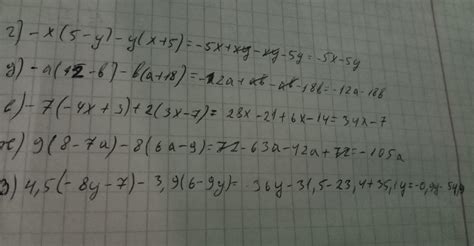 г) -x(5-y)-y(x+5)=-5x+xy-xy-5y=-5x-5y
д) -a(12-b)-b(a+18)=-12a+ab-ab-18b=-12a-18b
е) -7(-4x+3)+2(3x-7)=28x-21+6x-14=34x-7
ж) 9(8-7a)-8(6a-9)=72-63a-42a+72=-105a
з) 4,5(-8y-7)-3,9(6-9y)=-36y-31,5-23,4+35,1y=-0,9y-54,9